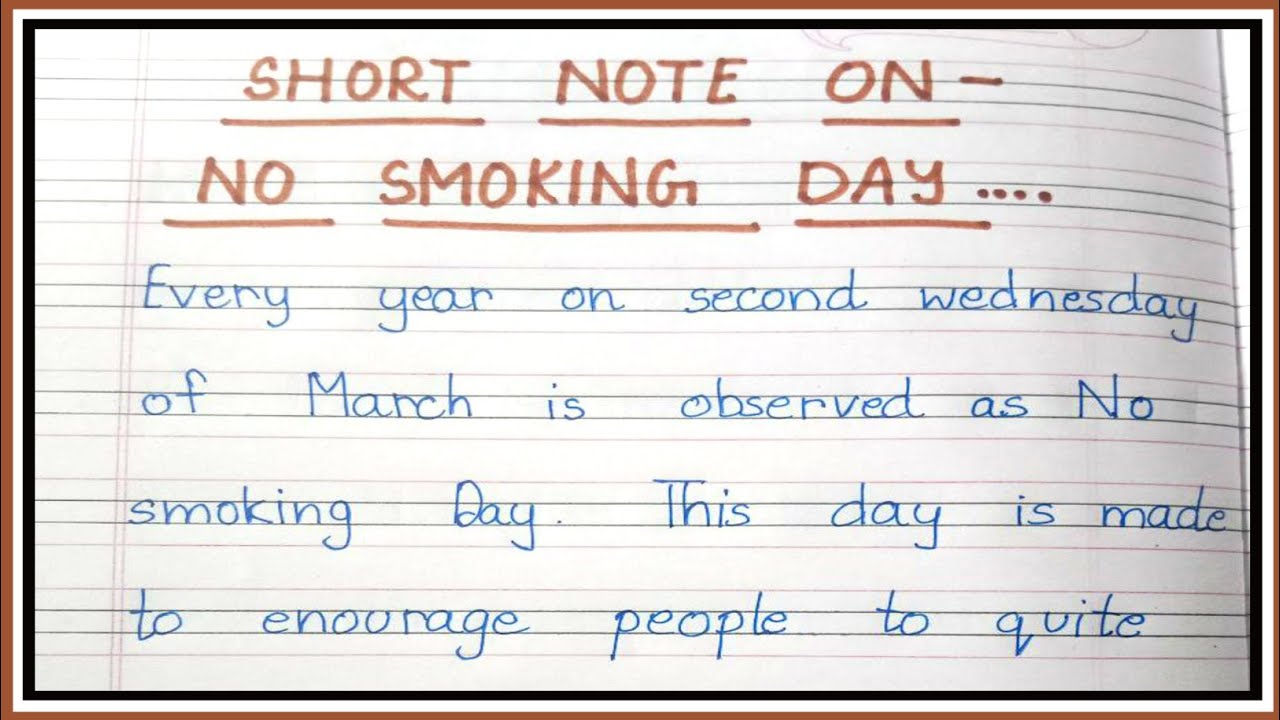 SHORT NOTE ON -
NO SMOKING DAY ....
Every year on second wednesday
of March is observed as No
smoking Day. This day is made
to enourage people to quite